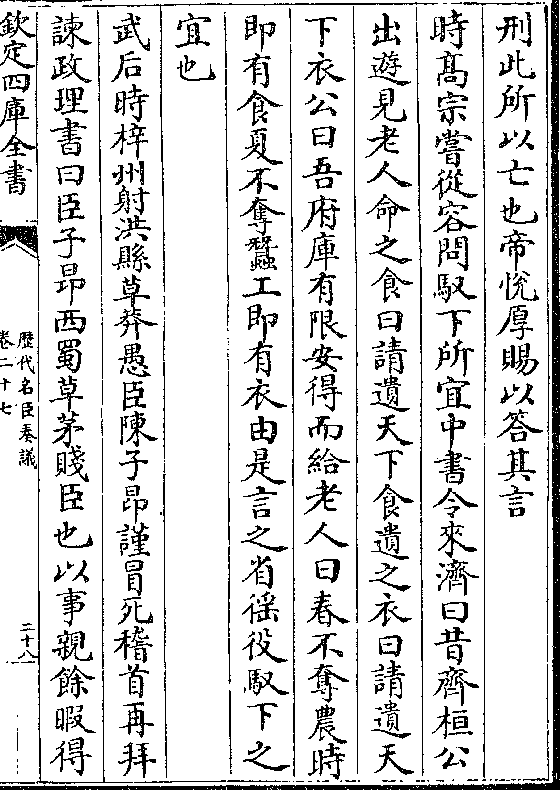 刑此所以亡也帝悅厚賜以答其言
時髙宗嘗從容問馭下所宜中書令來濟曰昔齊桓公
出遊見老人命之食曰請遺天下食遺之衣曰請遺天
下衣公曰吾府庫有限安得而給老人曰春不奪農時
即有食夏不奪蠶工即有衣由是言之省徭役馭下之
宜也
武后時梓州射洪縣草莽愚臣陳子昂謹冒死稽首再拜
諫政理書曰臣子昂西蜀草茅賤臣也以事親餘暇得
欽定四庫全書
歷代名臣奏議
卷二十七
二十八